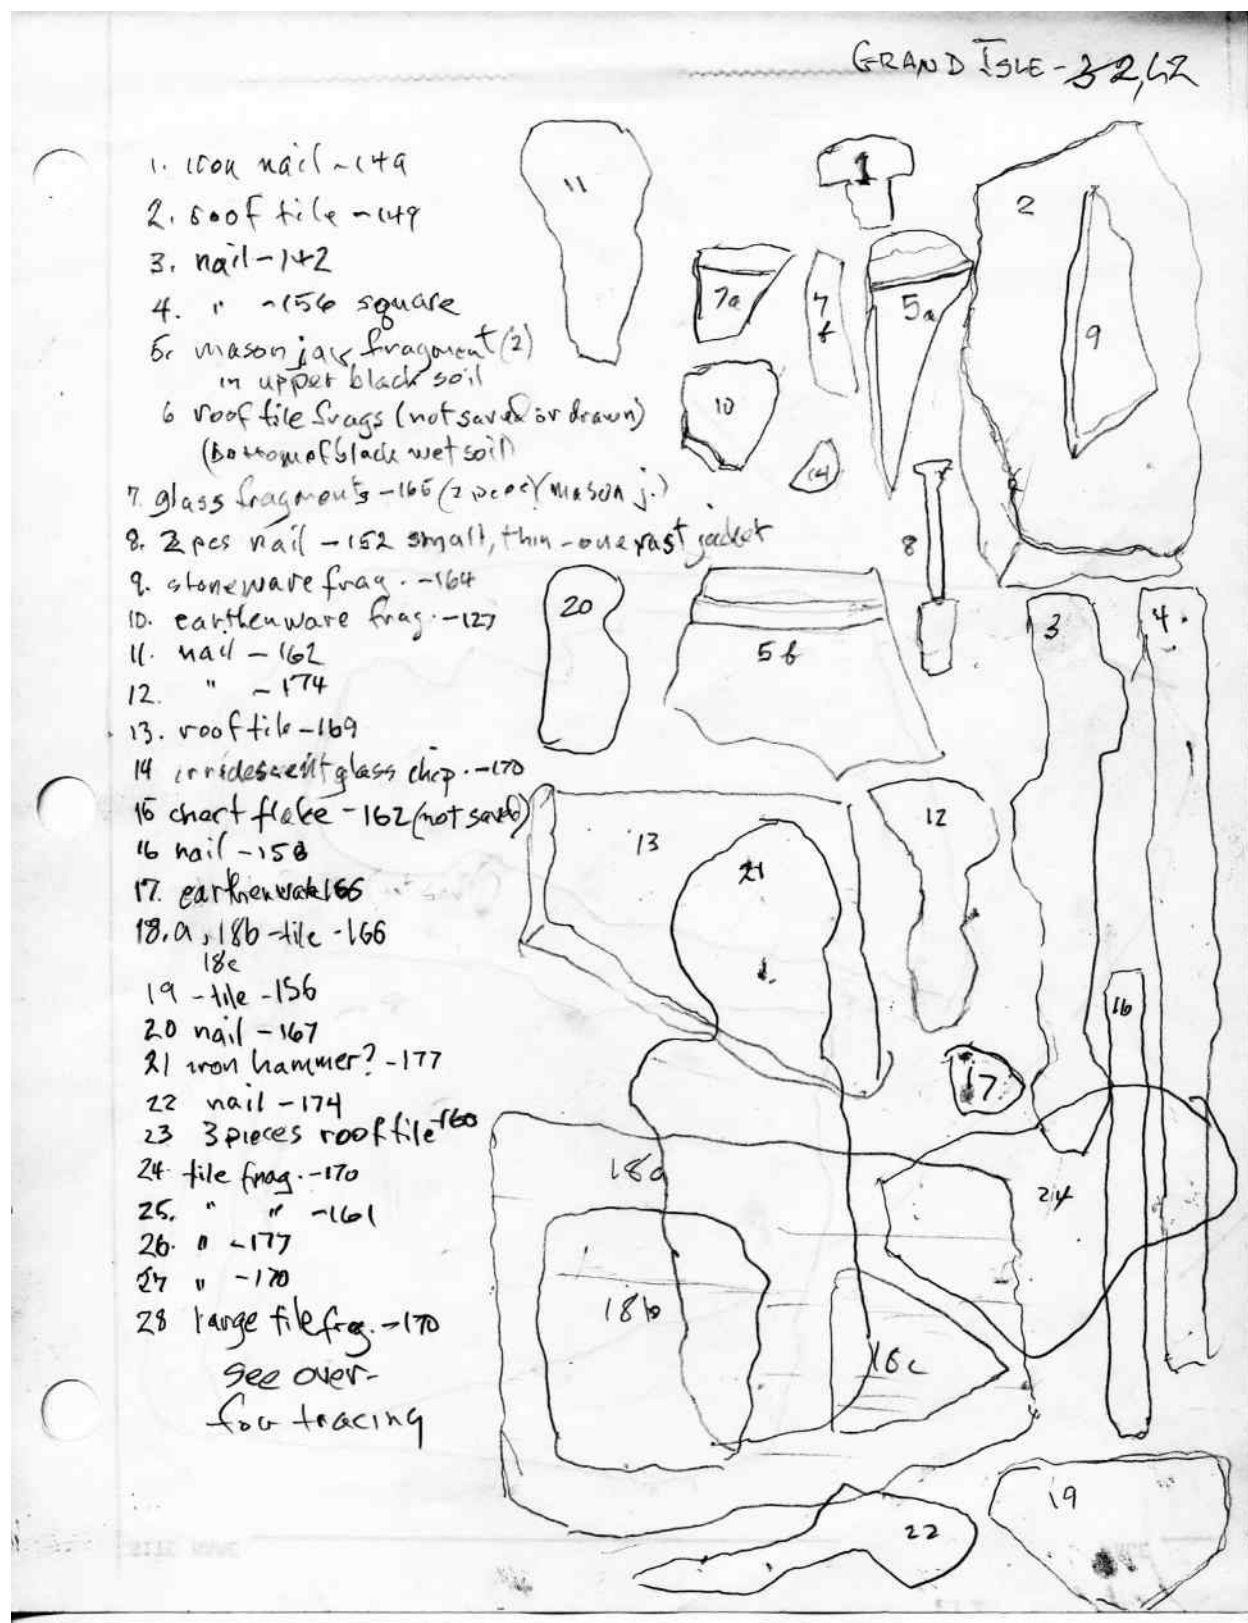 GRAND ISLE - 32, L2
1. iron nail - 149
2. roof tile - 149
3. nail - 142
4. " - 156 square
5. mason jar fragment (2)
in upper black soil
6 roof tile frags (not saved or drawn)
(bottom of black wet soil)
7. glass fragments - 165 (2 pcs) (mason j.)
8. 2 pcs nail - 152 small, thin - one rust jacket
9. stoneware frag. - 164
10. earthenware frag. - 127
11. nail - 162
12. " - 174
13. roof tile - 169
14 irridescent glass chip. - 170
15 chert flake - 162 (not saved)
16 nail - 158
17. earthenware 166
18.a, 18b - tile - 166
18c
19 - tile - 156
20 nail - 167
21 iron hammer? - 177
22 nail - 174
23 3 pieces roof tile - 160
24. tile frag. - 170
25. " " - 161
26. " - 177
27 " - 170
28 large tile frag. - 170
see over -
for tracing
11
1
2
7a
7b
5a
9
10
14
8
20
5b
3
4
13
21
12
16
17
18a
24
18b
18c
22
19